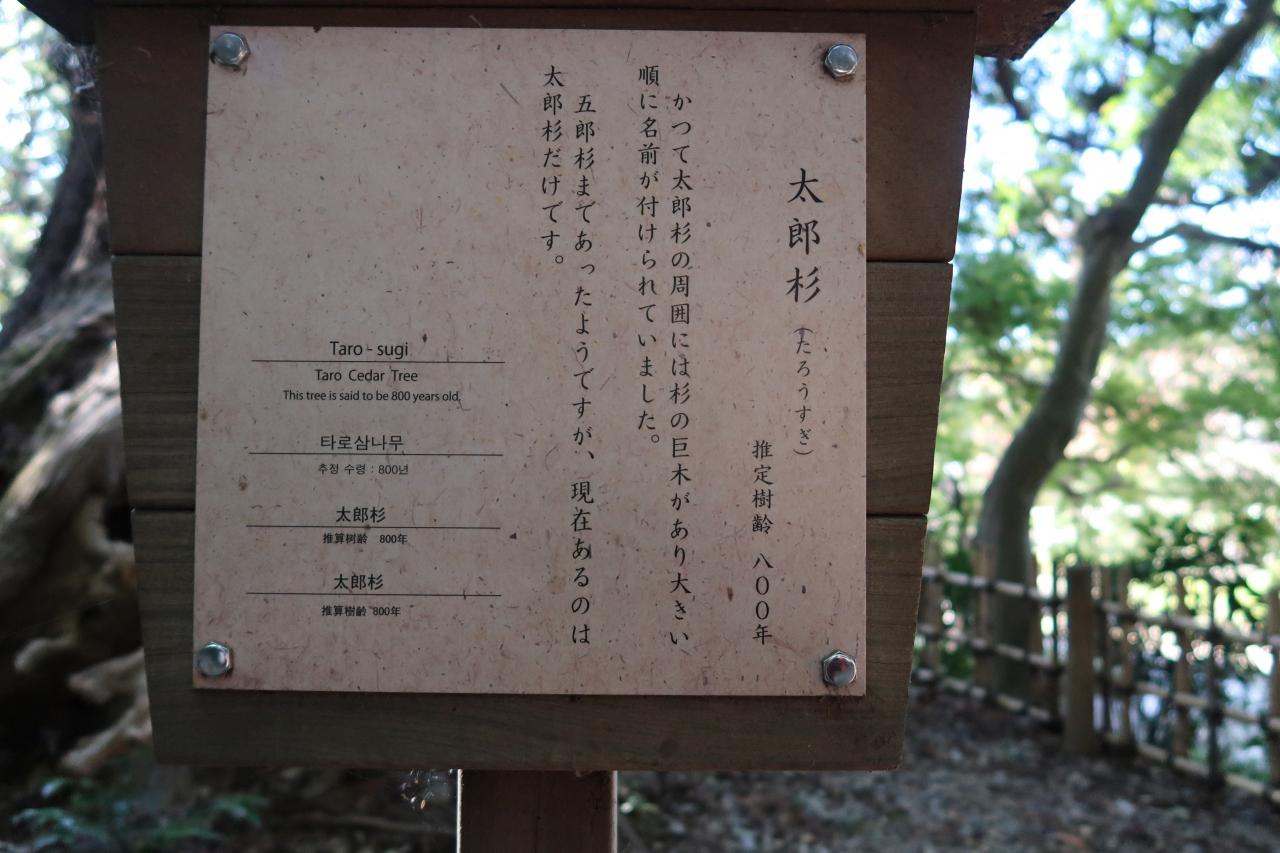 太郎杉（たろうすぎ）
推定樹齢 八〇〇年
かつて太郎杉の周囲には杉の巨木があり大きい
順に名前が付けられていました。
五郎杉まであったようですが、現在あるのは
太郎杉だけです。
Taro - sugi
Taro Cedar Tree
This tree is said to be 800 years old.
타로삼나무
추정 수령 : 800년
太郎杉
推算树龄 800年
太郎杉
推算樹齡 800年